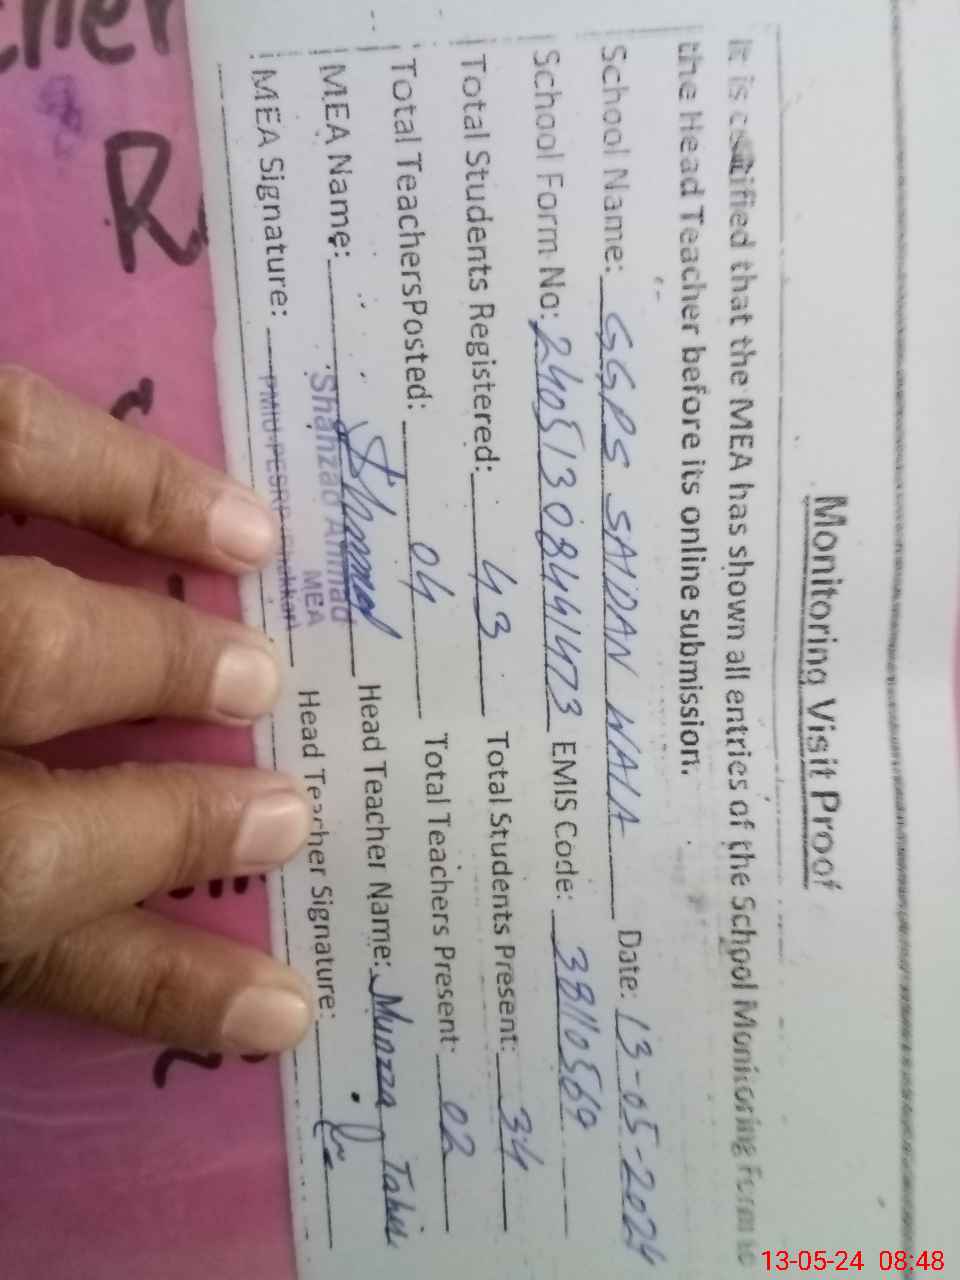 Monitoring Visit Proof
It is certified that the MEA has shown all entries of the School Monitoring Form to
the Head Teacher before its online submission.
School Name: GGPS SAIDAN WALA Date: 13-05-2024
School Form No: 2405130844473 EMIS Code: 38110569
Total Students Registered: 43 Total Students Present: 34
Total TeachersPosted: 04 Total Teachers Present: 02
MEA Name: Shahzad Ahmad Head Teacher Name: Munazza Tahir
MEA
MEA Signature: Head Teacher Signature:
PMIU-PESRP Bhakkar
13-05-24 08:48